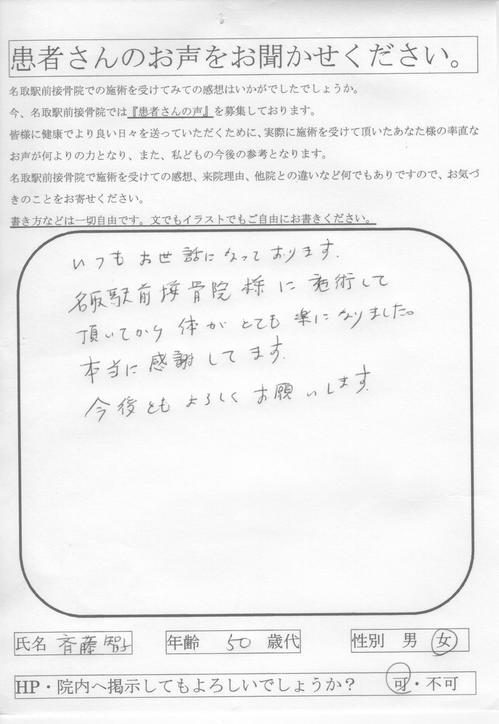 患者さんのお声をお聞かせください。
名取駅前接骨院での施術を受けてみての感想はいかがでしたでしょうか。
今、名取駅前接骨院では『患者さんの声』を募集しております。
皆様に健康でより良い日々を送っていただくために、実際に施術を受けて頂いたあなた様の率直な
お声が何よりの力となり、また、私どもの今後の参考となります。
名取駅前接骨院で施術を受けての感想、来院理由、他院との違いなど何でもありですので、お気づ
きのことをお寄せください。
書き方などは一切自由です。文でもイラストでもご自由にお書きください。
いつもお世話になっております。
名取駅前接骨院様に施術して
頂いてから体がとても楽になりました。
本当に感謝してます。
今後ともよろしくお願いします。
氏名 斉藤智子 年齢 50 歳代 性別 男 女
HP・院内へ掲示してもよろしいでしょうか？ 可・不可